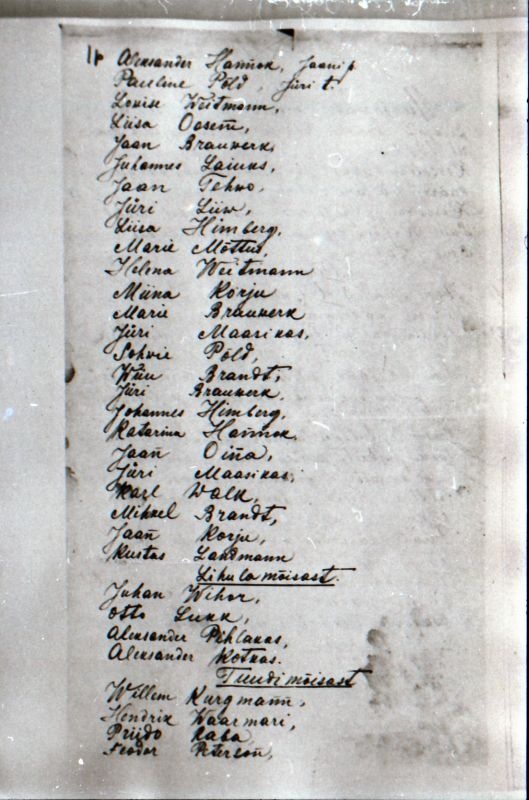 Aleksander Han̄ok, Jaani p.
Pauline Põld, Jüri t.
Louise Weitmann,
Liisa Oosem̄,
Jaan Brauwerk,
Juhannes Laiuks,
Jaan Tehwo,
Jüri Liiw,
Liisa Himberg,
Marie Mõttus,
Helena Weitmann
Miina Korju
Marie Brauwerk
Jüri Maasikas,
Sohvie Põld,
Wiiu Brandt,
Jüri Brauwerk,
Johannes Himberg,
Katarina Han̄ok,
Jaan̄ Oin̄a,
Jüri Maasikas,
Karl Walk,
Mihkel Brandt,
Jaan̄ Korju,
Kustas Landmann
Lihula mõisast.
Juhan Wihor,
Otto Lukk,
Aleksander Pihlakas,
Aleksander Kotkas.
Tuudi mõisast
Willem Kurgman̄,
Hendrik Waarmari,
Priido Kaba,
Feodor Peterson̄,